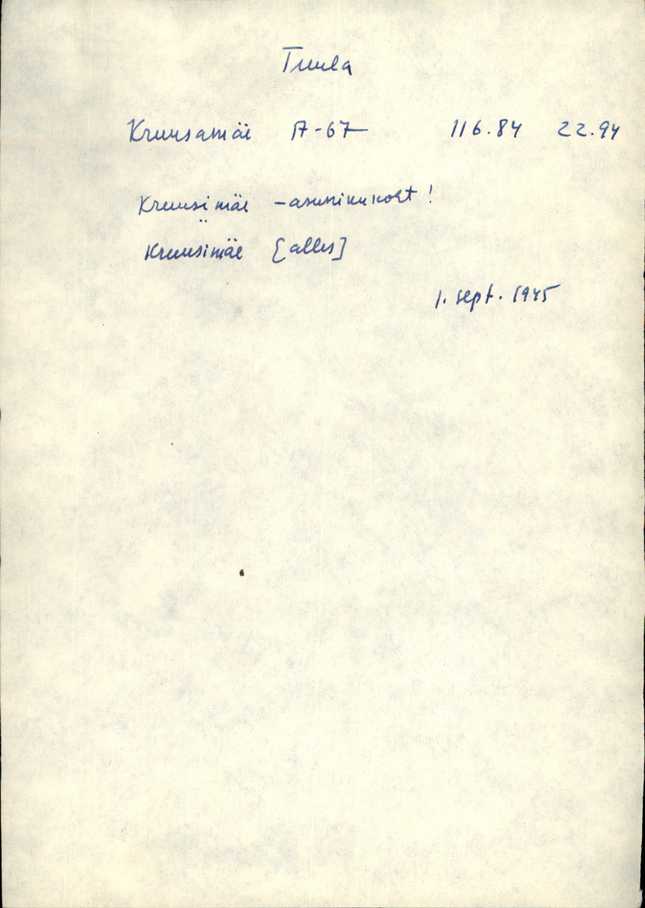 Tuula
Kruusamäe A-67 116.84 22.94
Kruusimäe - asunikukoht!
Kruusimäe [alles]
1. sept. 1945